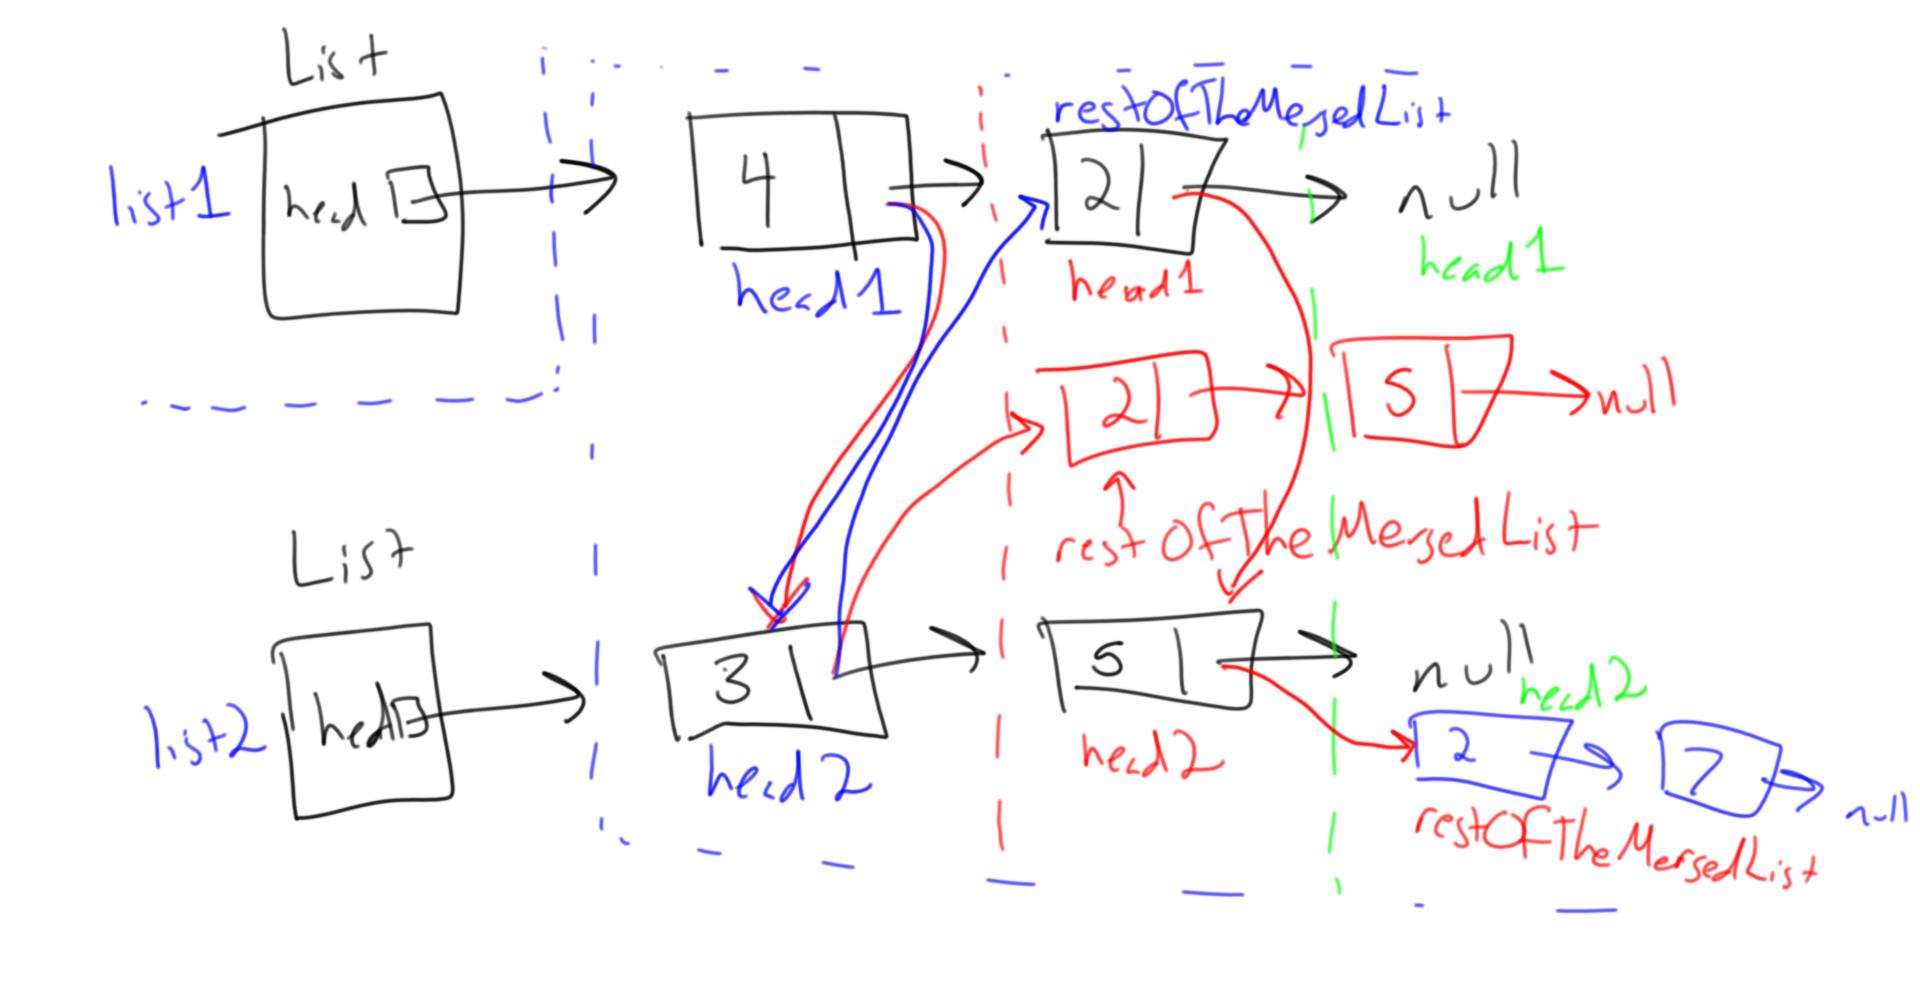 List
list1
head
4
head1
restOfTheMergedList
2
head1
null
head1
2
5
null
restOfTheMergedList
List
list2
head
3
head2
5
head2
null
head2
2
7
null
restOfTheMergedList